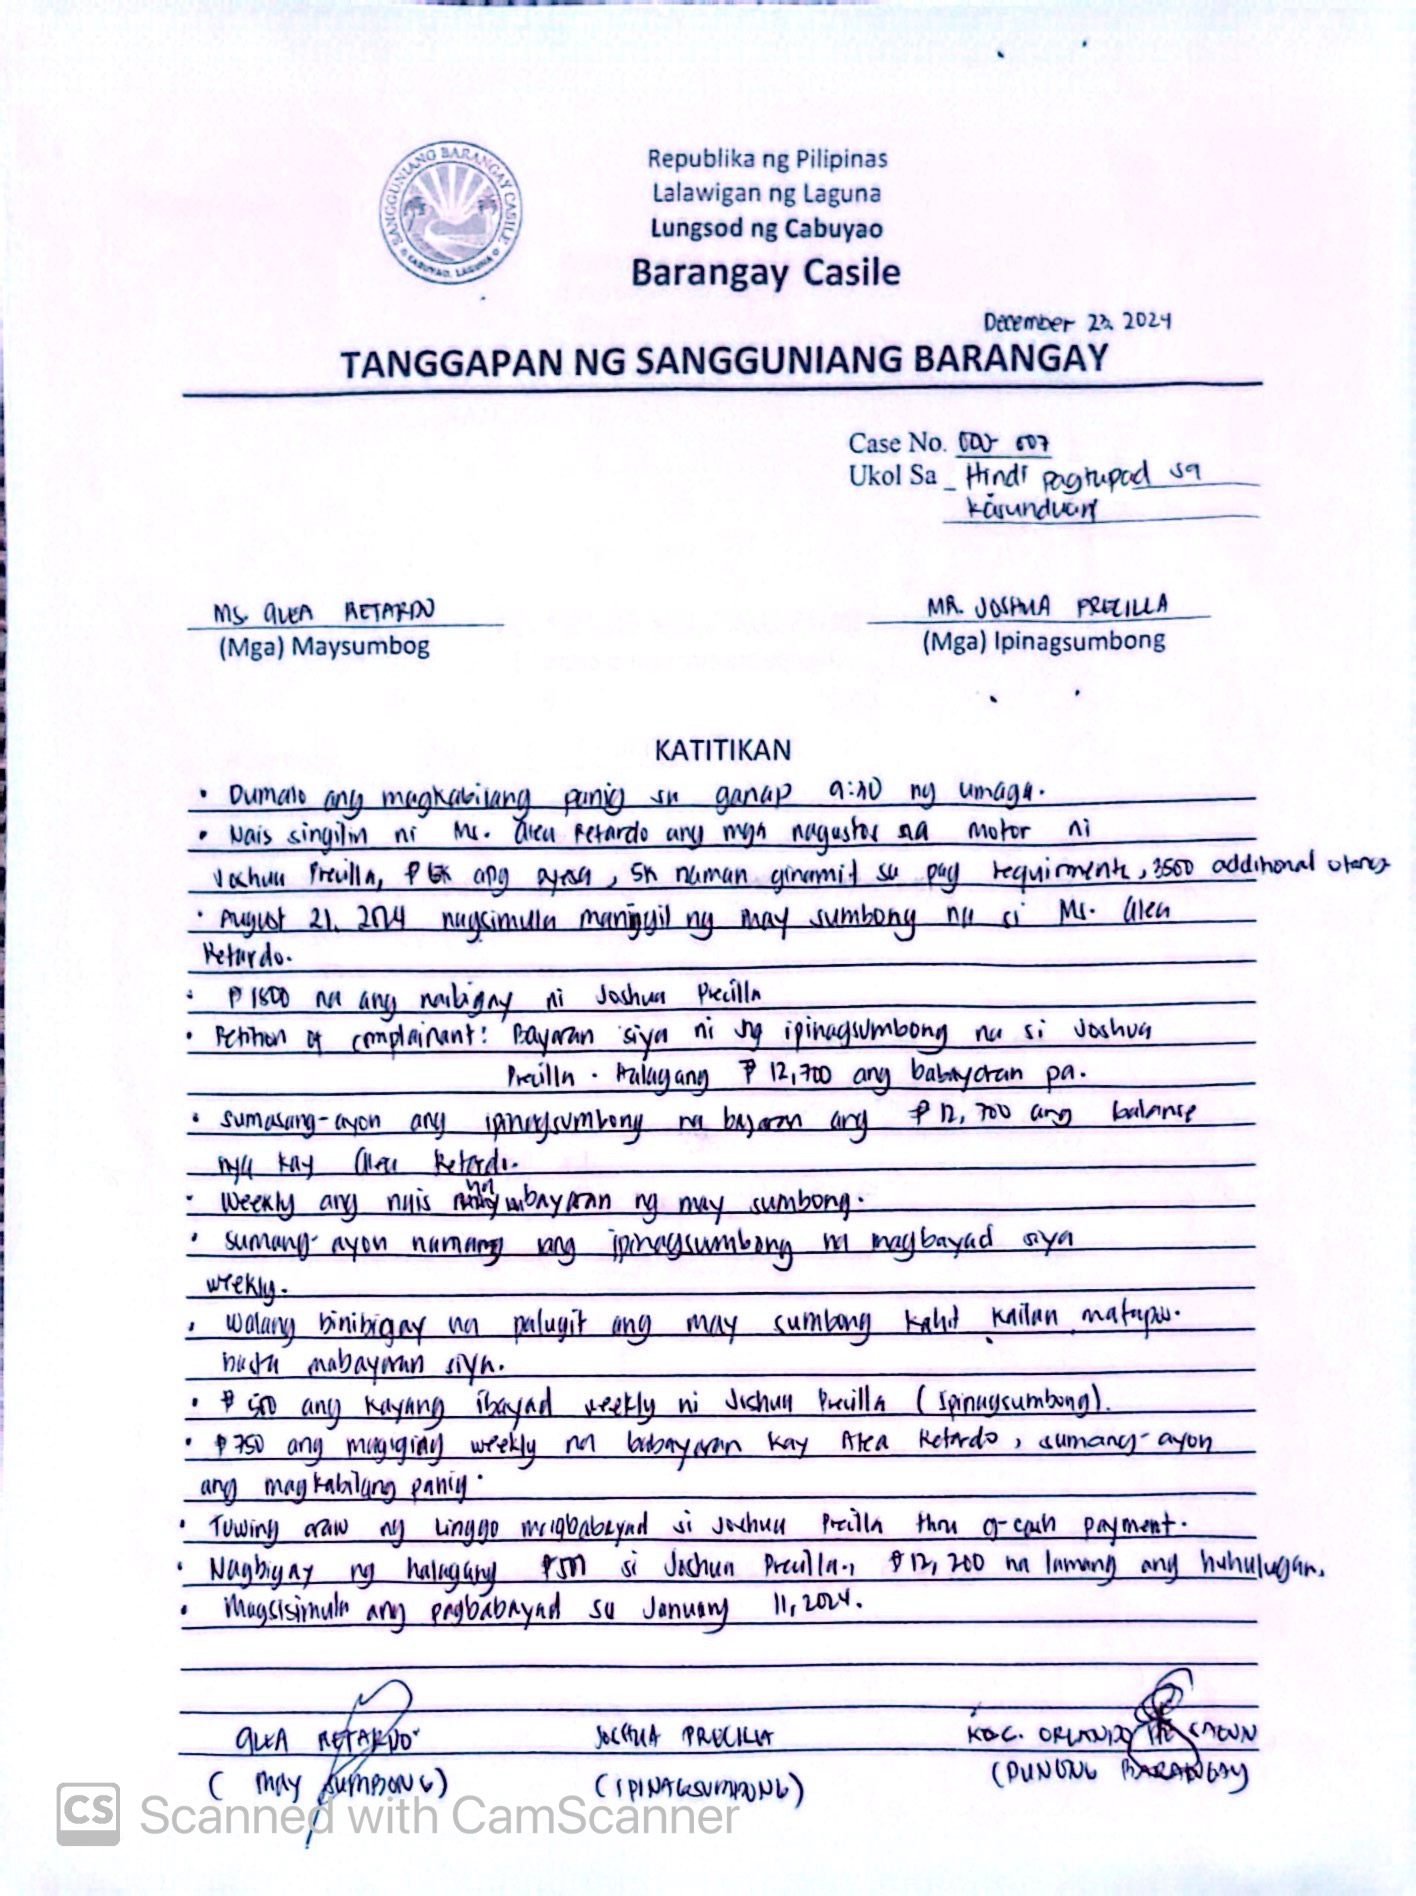 SANGGUNIANG BARANGAY CASILE
CABUYAO, LAGUNA
Republika ng Pilipinas
Lalawigan ng Laguna
Lungsod ng Cabuyao
Barangay Casile
December 23, 2024
TANGGAPAN NG SANGGUNIANG BARANGAY
Case No.
Ukol Sa Hindi pagtupad sa
kasunduan
MS. ALEA RETARDO
(Mga) Maysumbog
MR. JOSHUA PRECILLA
(Mga) Ipinagsumbong
KATITIKAN
• Dumalo ang magkabilang panig sa ganap ng umaga.
• Nais singilin ni Ms. Alea Retardo ang mga nagastos sa motor ni
Joshua Precilla, ang , 5k naman ginamit sa pag requirments, 3500 additional utang
• August 21, 2024 nagsimula maningil ng may sumbong na si Ms. Alea
Retardo.
• ₱1800 na ang naibigay ni Joshua Precilla
• Petition of complainant: Bayaran siya ni ng ipinagsumbong na si Joshua
Precilla. Halagang ₱12,700 ang babayaran pa.
• Sumasang-ayon ang ipinagsumbong na bayaran ang ₱12,700 ang balanse
nya kay Alea Retardo.
• Weekly ang nais na bayaran ng may sumbong.
• Sumang-ayon namang ang ipinagsumbong na magbayad siya
weekly.
• Walang binibigay na palugit ang may sumbong kahit kailan matapos.
basta mabayaran siya.
• ₱500 ang kayang ibayad weekly ni Joshua Precilla (Ipinagsumbong).
• ₱750 ang magiging weekly na babayaran kay Alea Retardo, sumang-ayon
ang magkabilang panig.
• Tuwing araw ng Linggo magbabayad si Joshua Precilla thru G-cash payment.
• Nagbigay ng halagang ₱500 si Joshua Precilla., ₱12,200 na lamang ang huhulugan.
• Magsisimula ang pagbabayad sa January 11, 2024.
ALEA RETARDO
(MAY SUMBONG)
JOSHUA PRECILLA
(IPINAGSUMBONG)
ORLANDO
(PUNONG BARANGAY)
CS Scanned with CamScanner